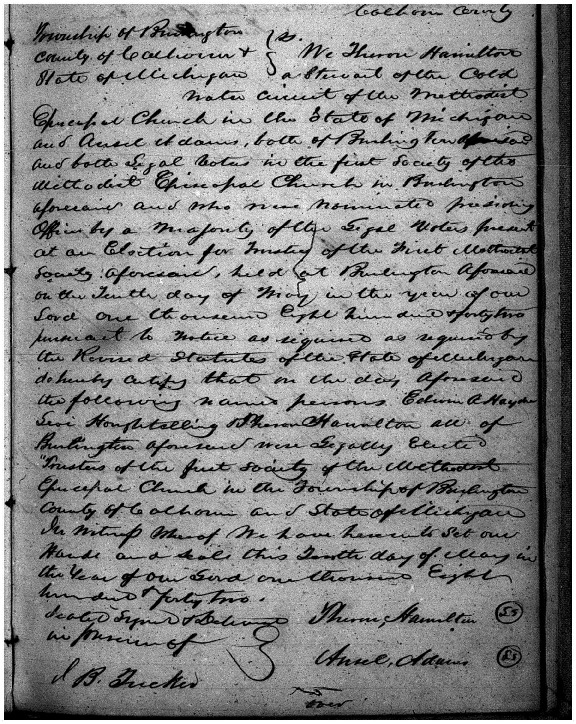 Calhoun County
Township of Burlington
County of Calhoun &
State of Michigan
ss. We Theron Hamilton
a Stewart of the Cold
water circuit of the Methodist
Episcopal Church in the State of Michigan
and Ansel Adams, both of Burlington
and both Legal Voters in the first Society of the
Methodist Episcopal Church in Burlington
aforesaid and who were nominated presiding
Officers by a Majority of the Legal Voters present
at an Election for Trustees of the First Methodist
Society aforesaid, held at Burlington Aforesaid
on the Tenth day of May in the year of our
Lord one thousand Eight hundred & forty two
pursuant to notice as required as required by
the Revised Statutes of the State of Michigan
do hereby certify that on the day Aforesaid
the following named persons Edwin A Hayden
Levi Houghtelling & Theron Hamilton all of
Burlington aforesaid were Legally Elected
Trustees of the first Society of the Methodist
Episcopal Church in the Township of Burlington
County of Calhoun and State of Michigan
In Witness Whereof We have hereunto Set our
Hands and seals this Tenth day of May in
the Year of our Lord one thousand Eight
hundred & forty two.
Sealed Signed & Delivered
in presence of
Theron, Hamilton LS
Ansel, Adams LS
J B. Tucker
over